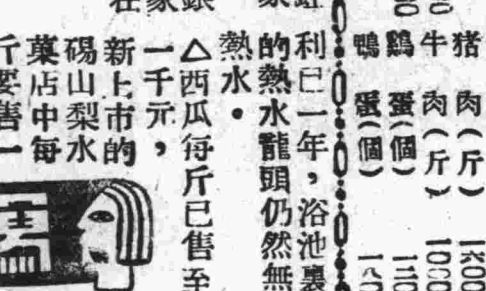 猪肉（斤）一六〇〇
牛肉（斤）
鷄蛋（個）一二〇
鴨蛋（個）一八〇
利已一年，浴池裏
的熱水龍頭仍然無
熱水。
△西瓜每斤已售至
一千元，
新上市的
碭山梨水
菓店中每
斤要售一